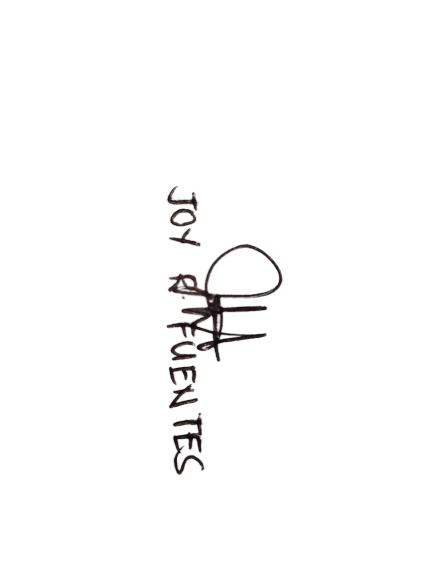 JOY R. FUENTES